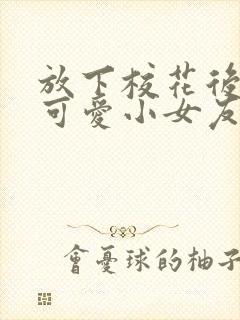 放下校花後
可愛小女友
會憂球的柚子